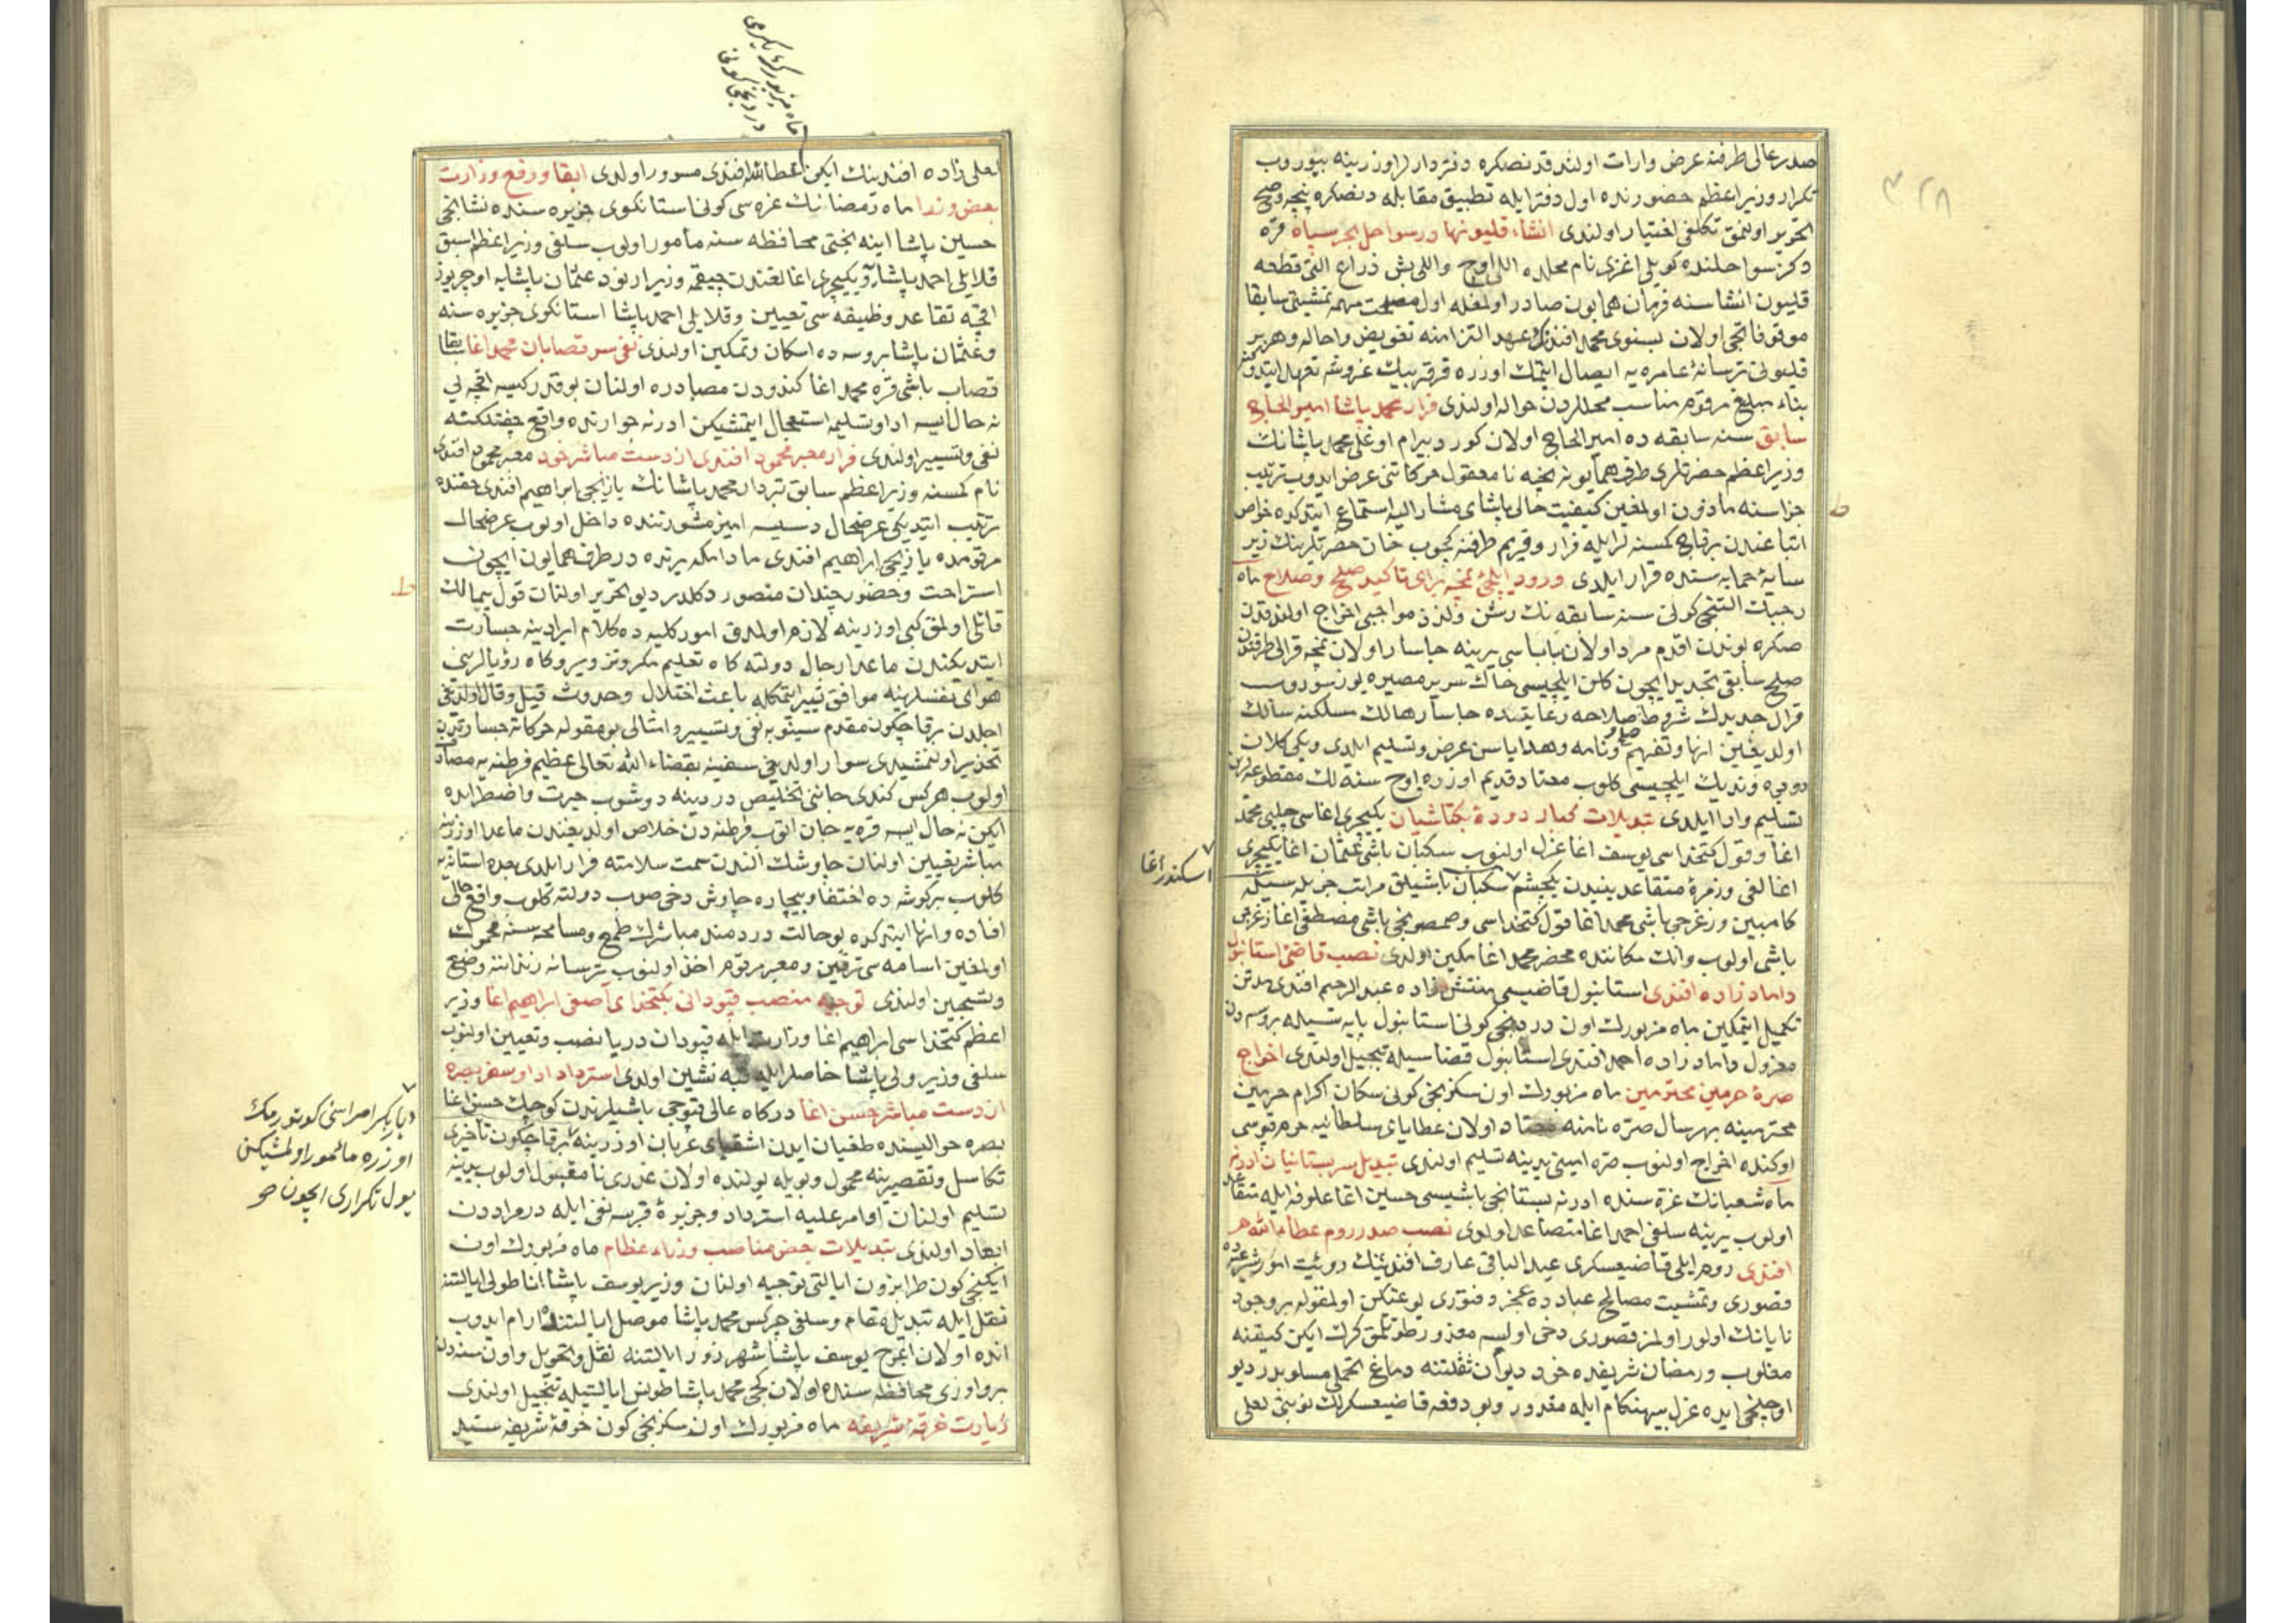 ٣٢٨
صدر عالی طرفنه عرض وارات اولندقدنصکره دفتردارلر اوزرینه بیوروب
تکرار وزیر اعظم حضورنده اول دفتر ایله تطبیق مقابله دنصکره پنجه و صح
تحریر اولنمق تکلفی اختیار اولندی انشاء قلیونها در سواحل بحر سیاه قره
دکز سواحلنده کویلی اغزی نام محلده اللی اوچ واللی بش ذراع التی قطعه
قلیون انشاسنه فرمان همایون صادر اولمغله اول مصلحت مهمه تمشیتی سابقا
موقوفاتجی اولان بسنوی محمد افندینک عهد التزامنه تفویض و احاله و هر بر
قلیونی ترسانۀ عامره یه ایصال ایتمک اوزره قرقر بیک غروشه تعهد ایتدوکنه
بناء مبلغ مرقوم مناسب محللردن حواله اولندی فرار محمد پاشا امیر الحاج
سابق سنه سابقه ده امیر الحاج اولان کورد بیرام اوغلی محمد پاشانک
وزیر اعظم حضرتلری طرف همایونه بعض نا معقول حرکاتنی عرض ایدوب ترتیب
جزاسنه مأذون اولمغین کیفیت حالی پاشای مشار الیه استماع ایتدکده خواص
اتباعندن برقاچ کمسنه لر ایله فرار و قریم طرفنه کچوب خان حضرتلرینک زیر
سایۀ حمایه سنده قرار ایلدی ورود ایلچئ نمچه برای تأکید صلح و صلاح ماه
رجبک التنجی کونی سنه سابقه نک رشن و لذذ مواجبی اخراج اولندقدن
صکره بوندن اقدم مرد اولان باباسی یرینه جاسار اولان نمچه قرالی طرفندن
صلح سابقی تجدید ایچون کلن ایلچیسی خاک سریر مصیره یوز سوروب
قرال جدیدک شروط صلاحه رعایتده جاسار هالک مسلکنه سالک
اولدیغین انها و تفهیم و نامه و هدایاسن عرض و تسلیم ایلدی و یکی کلان
دوبره وندیک ایلچیسی کلوب معتاد قدیم اوزره اوچ سنه لک مقطوعه لرین
تسلیم و ادا ایلدی تبدیلات کبار دودۀ بکتاشیان یکیچری اغاسی چلبی محمد
اغا و قول کتخداسی یوسف اغا عزل اولنوب سکبان باشی عثمان اغا یکیچری
اسکندر اغا
اغالغی و زمرۀ متقاعدیندن یکچشم سکبان باشیلق مراتب جریله سیله
کامبین و زغرجی باشی محمد اغا قول کتخداسی و صمصونجی باشی مصطفی اغا زغرجی
باشی اولوب و انک مکاننده محضر محمد اغا مکین اولدی نصب قاضئ استانبول
داماد زاده افندی استانبول قاضیسی منتش زاده عبد الرحیم افندی مدتن
تکمیل ایتمکین ماه مزبورک اون دردنجی کونی استانبول پایه سیله بروسه دن
معزول داماد زاده احمد افندی استانبول قضاسیله تبجیل اولندی اخراج
صرۀ حرمین محترمین ماه مزبورک اون سکزنجی کونی سکان اکرام حرمین
محترمینه بهر سال صره نامنه معتاد اولان عطایای سلطانیه حرم قپوسی
اوکنده اخراج اولنوب صره امینی یدینه تسلیم اولندی تبدیل سر بستانیان ادرنه
ماه شعبانک غره سنده ادرنه بستانجی باشیسی حسین اغا علوفه ایله متقاعد
اولوب یرینه سلفی احمد اغا متصاعد اولدی نصب صدر روم عطاء الله
افندی روم ایلی قاضیعسکری عبد الباقی عارف افندینک رویت امور شرعیه ده
قصوری و تمشیت مصالح عباده عجز و فتوری یوغیکن اولمقوله بر وجود
نایابک اولور اولمز قصوری دخی اولسه معذور طوتلمق کرک ایکن کیفنه
مغلوب و رمضان شریفده خود دیوان ثقلتنه دماغ تحملی مسلوبدر دیو
اوچنجی ایده عزل بیهنکام ایله مغدور و بو دفعه قاضیعسکرلک نوبتی لعلی
ماه مزبورک یکرمی
دردنجی کونی
لعلی زاده افندینک ایکن عطاء الله افندی مسرور اولدی ابقا و رفع وزارت
بعض وزرا ماه رمضانک غره سی کونی استانکوی جزیره سنده نشانجی
حسین پاشا اینه بختی محافظه سنه مأمور اولوب سلفی وزیر اعظم اسبق
قلایلی احمد پاشا و یکیچری اغالغندن چیقمه وزیر ارنود عثمان پاشایه اوچریوز
اقچه تقاعد وظیفه سی تعیین و قلایلی احمد پاشا استانکوی جزیره سنه
و عثمان پاشا بروسه ده اسکان و تمکین اولندی نفی سر قصابان محمد اغا سابقا
قصاب باشی قره محمد اغا کندودن مصادره اولنان بوقدر کیسه اقچه یی
نه حال ایسه ادا و تسلیمه استعجال ایتمشیکن ادرنه جوارنده واقع چفتلکنه
نفی و تسییر اولندی فرار معبر محمود افندی از دست مباشر خود معبر محمود افندی
نام کمسنه وزیر اعظم سابق تبردار محمد پاشانک یازیجی ابراهیم افندی حقنده
ترتیب ایتدیکی عرضحال دسیسه امیز مشورتنده داخل اولوب عرضحال
مرقومده یازیجی ابراهیم افندی مادامکه یرنده در طرف همایون ایچون
استراحت و حضور چندان متصور دکلدر دیو تحریر اولنان قول بی مالک
قائلی اولمق کبی اوزرینه لازم اولمدق امور کلیه ده کلام ایرادینه جسارت
ایتدیکندن ماعدا رجال دولته کاه تعلیم مکر و تزویر و کاه رؤیالرینی
هوای نفسلرینه موافق تعبیر ایتمکله باعث اختلال و حدوث قیل و قال اولدیغی
اجلدن برقاچ کون مقدم سینوبه نفی و تسییر و امثالی بو مقوله حرکاته جسارتدن
تحذیر اولنمشیدی سوار اولدیغی سفینه بقضاء الله تعالی عظیم فرطنه یه مصادف
اولوب هر کس کندی جاننی تخلیص دردینه دوشوب حیرت و اضطرابده
ایکن نه حال ایسه قره یه جان اتوب فرطنه دن خلاص اولدیغندن ماعدا اوزرینه
مباشر تعیین اولنان چاوشک الندن سمت سلامته فرار ایلدی بعده استانه یه
کلوب بر کوشه ده اختفا و بیچاره چاوش دخی صوب دولته کلوب واقع حالی
افاده و انها ایتدکده بو حالت دردمند مباشرک طمع و مسامحه سنه محمول
اولمغین اسامه سی ترقین و معبر مرقوم اخذ اولنوب ترسانه زنداننه وضع
و تسجین اولندی توجیه منصب قپودانی بکتخدای آصفی ابراهیم اغا وزیر
اعظم کتخداسی ابراهیم اغا وزارت ایله قپودان دریا نصب و تعیین اولنوب
سلفی وزیر ولی پاشا خاصلر ایله قبه نشین اولدی استرداد اوامر سفر بصره
از دست مباشر حسن اغا درکاه عالی قپوجی باشیلرندن کوچک حسن اغا
دیاربکر امراسنی کوتورمک
اوزره مأمور اولمشیکن
یول تکراری ایچون صح
بصره حوالیسنده طغیان ایدن اشقیای عربان اوزرینه برقاچ کون تأخیری
تکاسل و تقصیرینه محمول و بویله یولنده اولان عذری نا مقبول اولوب یدینه
تسلیم اولنان اوامر علیه استرداد و جزیرۀ قبرسه نفی ایله در مراددن
ابعاد اولندی تبدیلات بعض مناصب وزراء عظام ماه مزبورک اون
ایکنجی کون طرابزون ایالتی توجیه اولنان وزیر یوسف پاشا اناطولی ایالتنه
نقل ایله تبدیل مقام و سلفی چرکس محمد پاشا موصل ایالتنده ارام ایدوب
انده اولان اعرج یوسف پاشا شهرزور ایالتنه نقل و تحویل و اون سنه دن
برو اوزی محافظه سنده اولان کچی محمد پاشا طونس ایالتیله تبجیل اولندی
زیارت خرقۀ شریفه ماه مزبورک اون سکزنجی کون خرقۀ شریفه سید